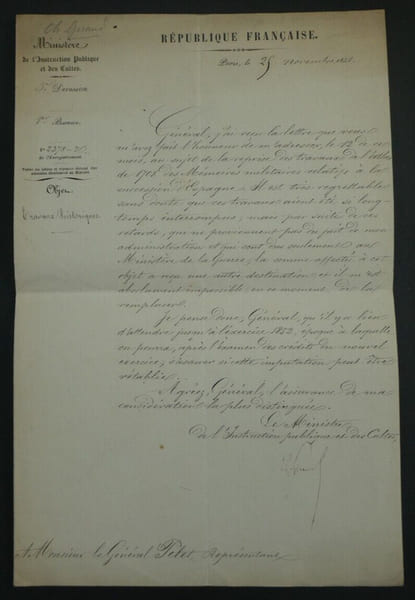 Ch Giraud
Ministère
de l'Instruction Publique
et des Cultes.
Division
Bureau.
de l'Enregistrement
Objet
Travaux historiques
RÉPUBLIQUE FRANÇAISE.
Paris, le 25 novembre 1851.
Général, j'ai reçu la lettre que vous
m'avez fait l'honneur de m'adresser, le 12 de ce
mois, au sujet de la reprise des travaux de l'atlas
de 1708 des Mémoires militaires relatifs à la
succession d'Espagne. Il est très regrettable
sans doute que ces travaux aient été si long-
temps interrompus; mais par suite de ces
retards, qui ne proviennent pas du fait de mon
administration et qui sont dus seulement au
Ministère de la Guerre, la somme affectée à cet
objet a reçu une autre destination et il m'est
absolument impossible en ce moment de la
remplacer.
Je pense donc, Général, qu'il y a lieu
d'attendre jusqu'à l'exercice 1852, époque à laquelle
on pourra, après l'examen des crédits du nouvel
exercice, s'assurer si cette imputation peut être
rétablie.
Agréez, Général, l'assurance de ma
considération la plus distinguée.
Le Ministre
de l'Instruction publique et des Cultes,
A Monsieur le Général Pelet, Représentant